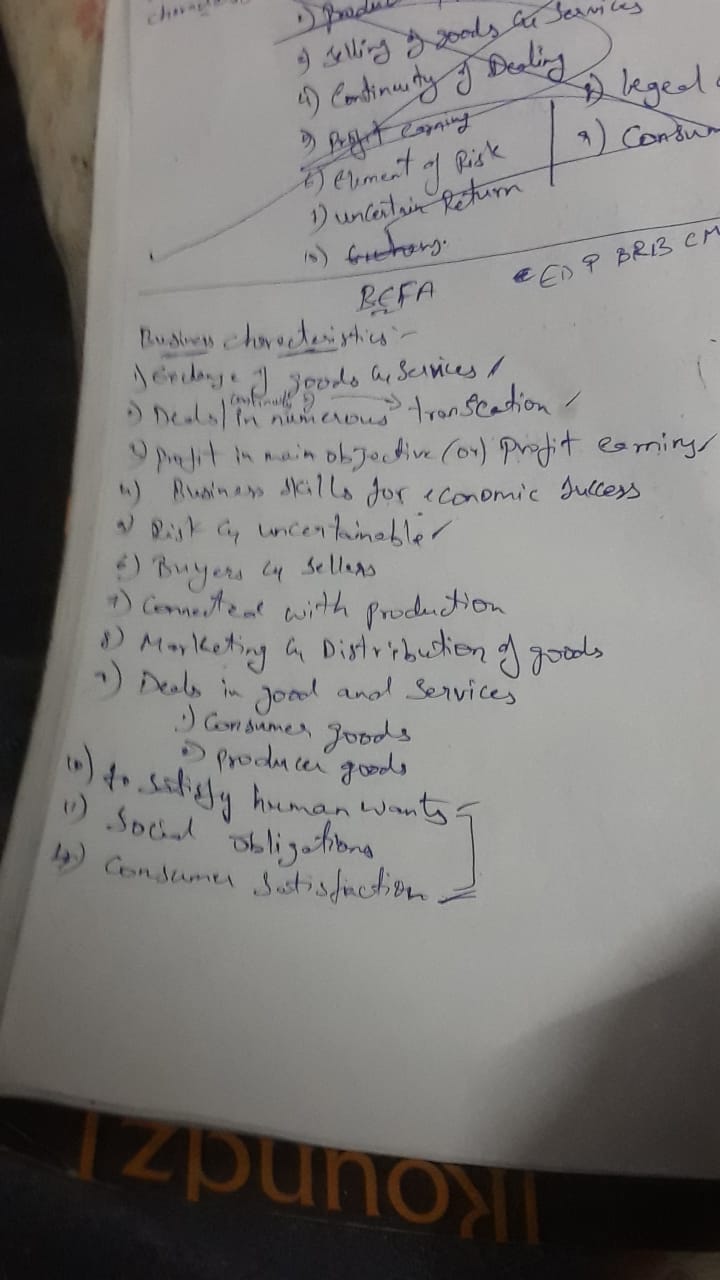 characte
1) Produ
3) Selling of goods & Services
4) Continuity of Dealing
8) legal
5) Profit earning
9) Consum
6) Element of Risk
7) uncertain Return
10)
BEFA
ED & BRB CM
Business characteristics:-
1) Exchange of goods & Services
continuity
2) Deals in numerous transcation
3) profit in main objective (or) Profit earning
4) Business skills for economic Success
5) Risk & uncertainable
6) Buyers & Sellers
7) Connected with production
8) Marketing & Distribution of goods
9) Deals in good and Services
1) Consumer goods
2) producer goods
10) to satisfy human wants
11) Social obligations
12) Consumer Satisfaction
IKoundz